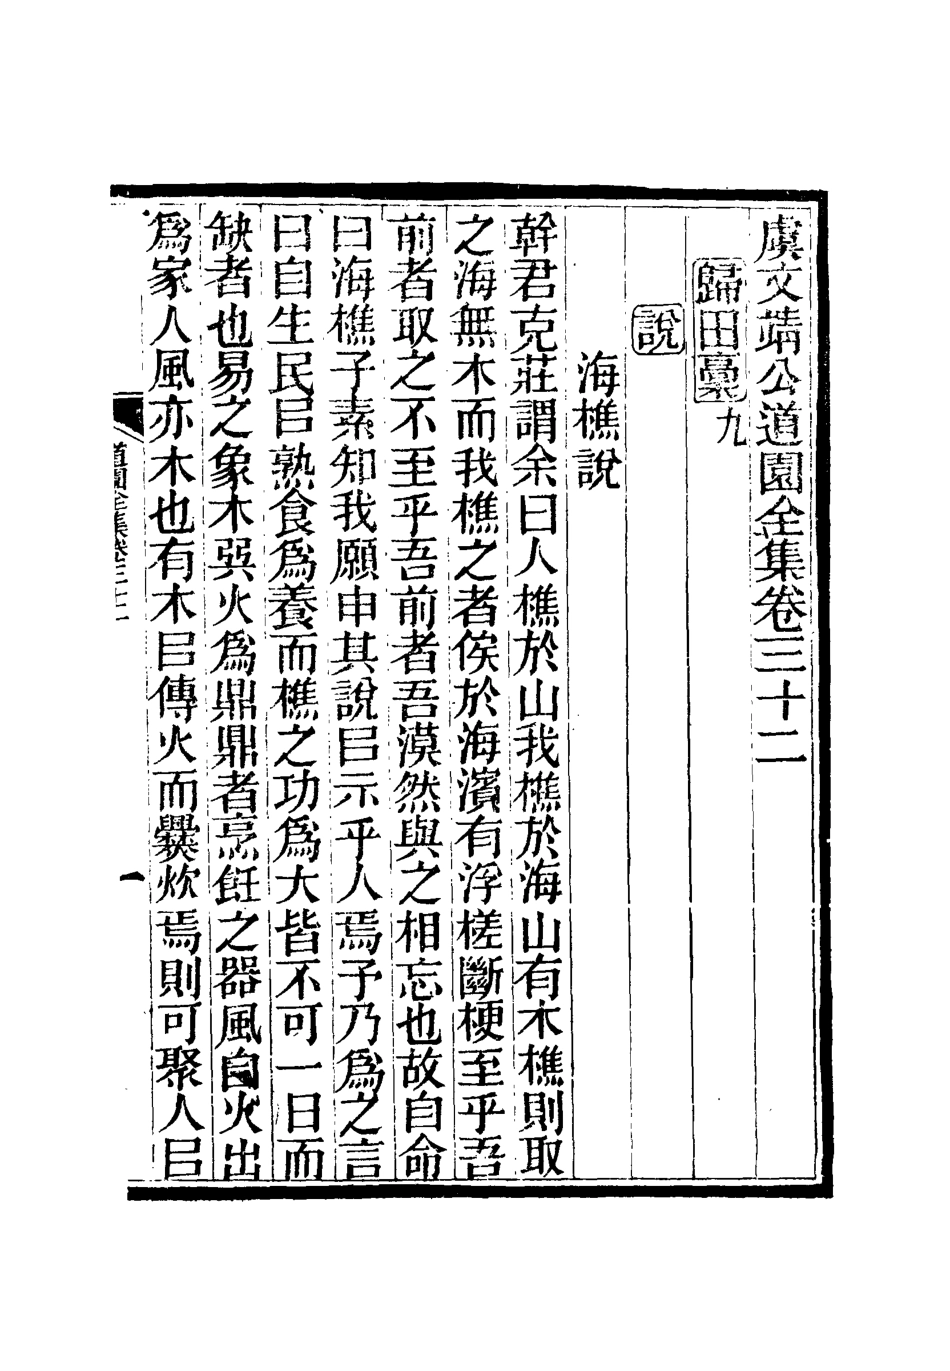 虞文靖公道園全集卷三十二
歸田稾九
說
海樵說
幹君克莊謂余曰人樵於山我樵於海山有木樵則取
之海無木而我樵之者俟於海濱有浮槎斷梗至乎吾
前者取之不至乎吾前者吾漠然與之相忘也故自命
曰海樵子素知我願申其說㠯示乎人焉予乃爲之言
曰自生民㠯熟食爲養而樵之功爲大皆不可一日而
缺者也易之象木巽火爲鼎鼎者烹飪之器風自火出
爲家人風亦木也有木㠯傳火而爨炊焉則可聚人㠯
道園全集卷三十二
一